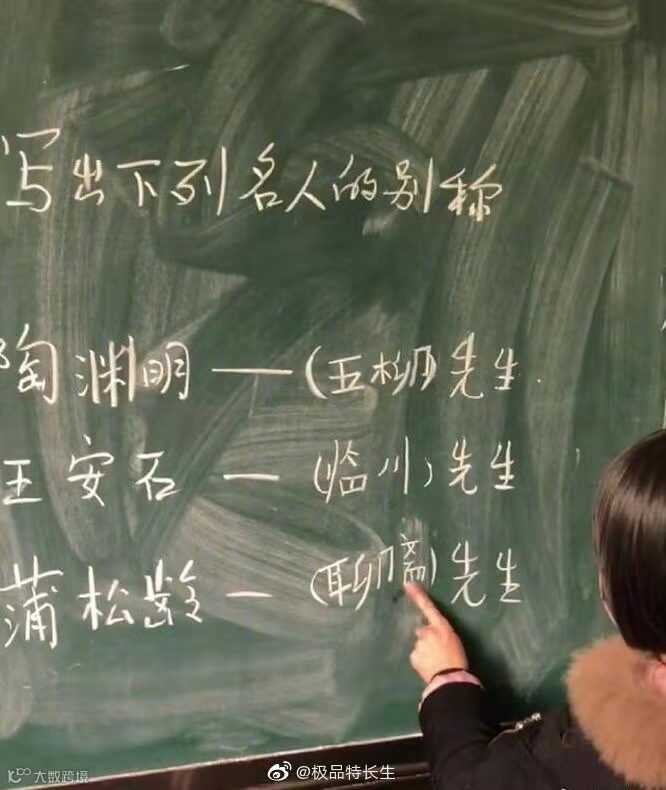 写出下列名人的别称
陶渊明—(五柳)先生.
王安石—(临川)先生
蒲松龄—(聊斋)先生
@极品特长生
10100 大数跨境